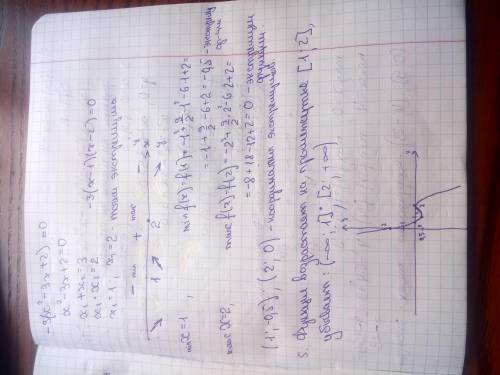 -3(x²-3x+2)=0
x²-3x+2=0
x₁+x₂=3
x₁·x₂=2
-3(x-1)(x-2)=0
x₁=1, x₂=2 - точки экстремума
- min + max -
1 2 x
min x=1, min f(x)=f(1)=-1³+9/2·1²-6·1+2=
=-1+9/2-6+2=-0,5 - экстремум функции
max x=2, max f(x)=f(2)=-2³+9/2·2²-6·2+2=
=-8+18-12+2=0 - экстремум функции.
(1; -0,5); (2; 0) - координаты экстремумов.
5. Функция возрастает на промежутке [1; 2],
убывает: (-∞; 1]; [2; +∞)